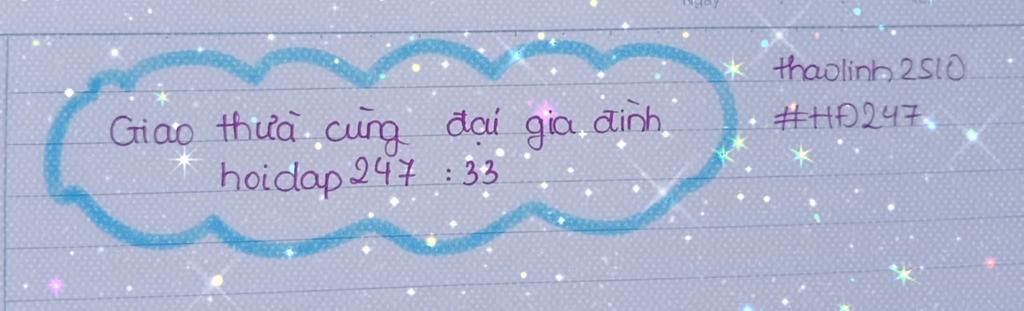 Ngày
Giao thừa cùng đại gia đình
hoidap247 :33
thaolinh2510
#HĐ247